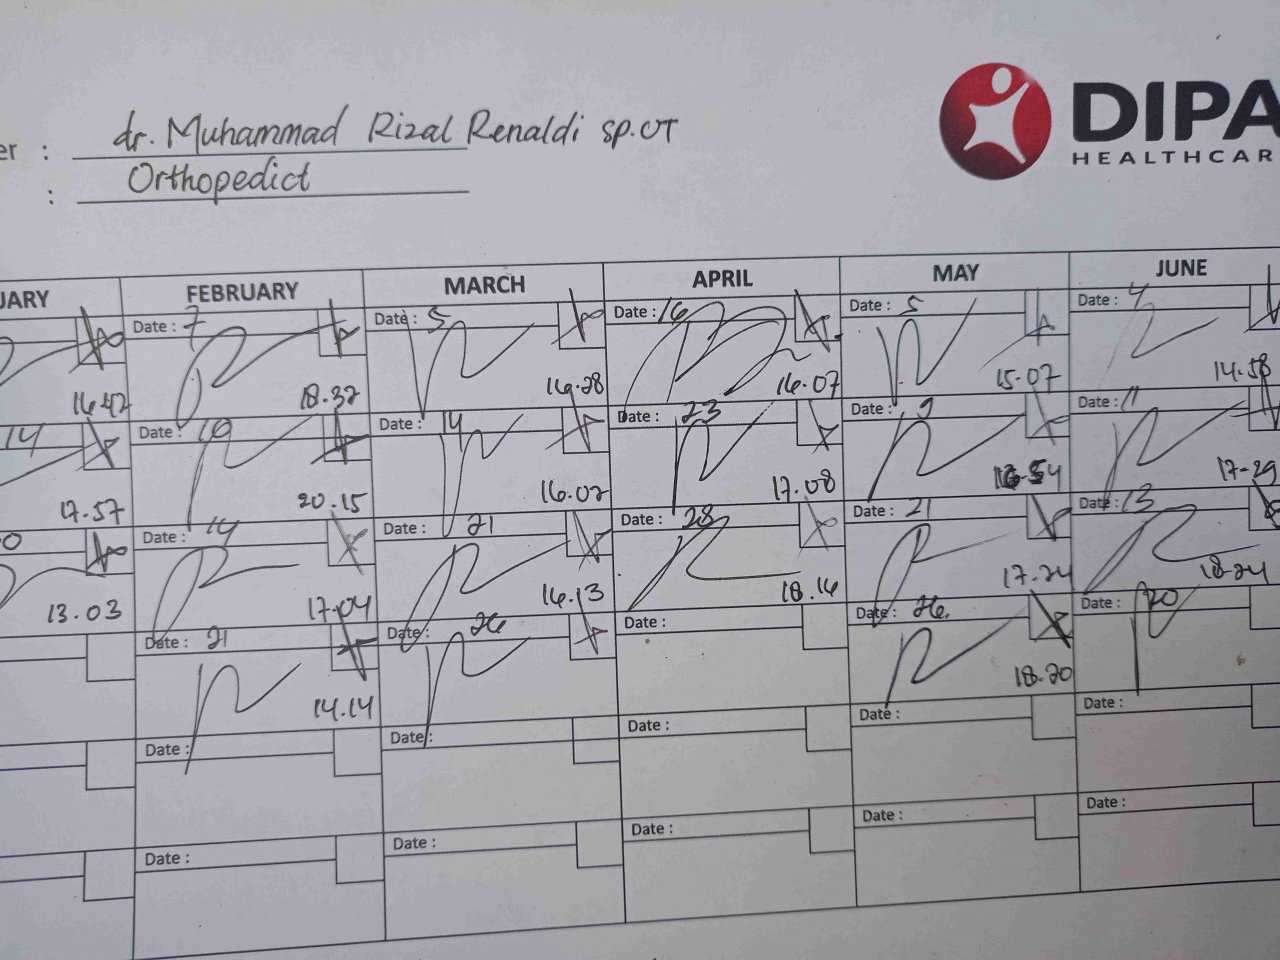 er : dr. Muhammad Rizal Renaldi SP.OT
: Orthopedict
DIPA
HEALTHCAR
UARY FEBRUARY MARCH APRIL MAY JUNE
Date : 7 Date : 5 Date : 16 Date : 5 Date : 4
16.42 18.32 16.28 16.07 15.07 14.58
14 Date : 10 Date : 14 Date : 23 Date : 9 Date : 11
17.57 20.15 16.02 17.08 17-29
0 Date : 14 Date : 21 Date : 28 Date : 21 Date : 13
13.03 17.04 16.13 18.16 17.24 18-24
Date : 21 Date : 26 Date : Date : 26. Date : 20
14.14 18.20
Date : Date : Date : Date : Date :
Date : Date : Date : Date : Date :